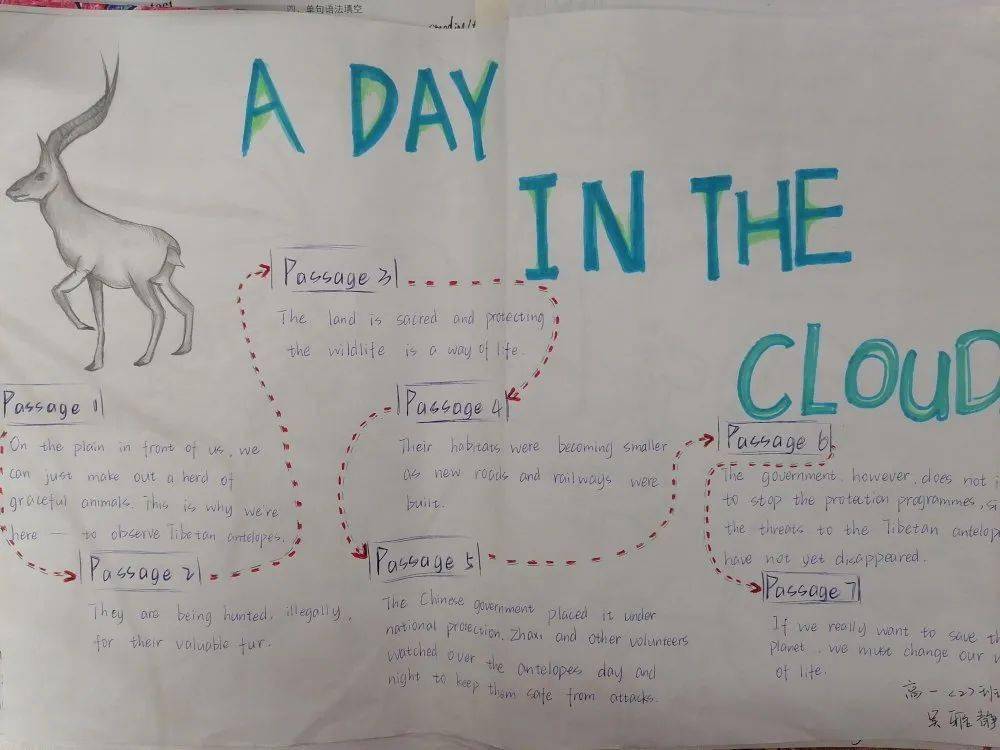 四、单句语法填空
A DAY
IN THE
CLOUD
Passage 1
On the plain in front of us, we
can just make out a herd of
graceful animals. This is why we're
here — to observe Tibetan antelopes.
Passage 2
They are being hunted, illegally,
for their valuable fur.
Passage 3
The land is sacred and protecting
the wildlife is a way of life.
Passage 4
Their habitats were becoming smaller
as new roads and railways were
built.
Passage 5
The Chinese government placed it under
national protection. Zhaxi and other volunteers
watched over the antelopes day and
night to keep them safe from attacks.
Passage 6
The government, however, does not
to stop the protection programmes,
the threats to the Tibetan
have not yet disappeared.
Passage 7
If we really want to save
planet, we must change our
of life.
高一(2)班